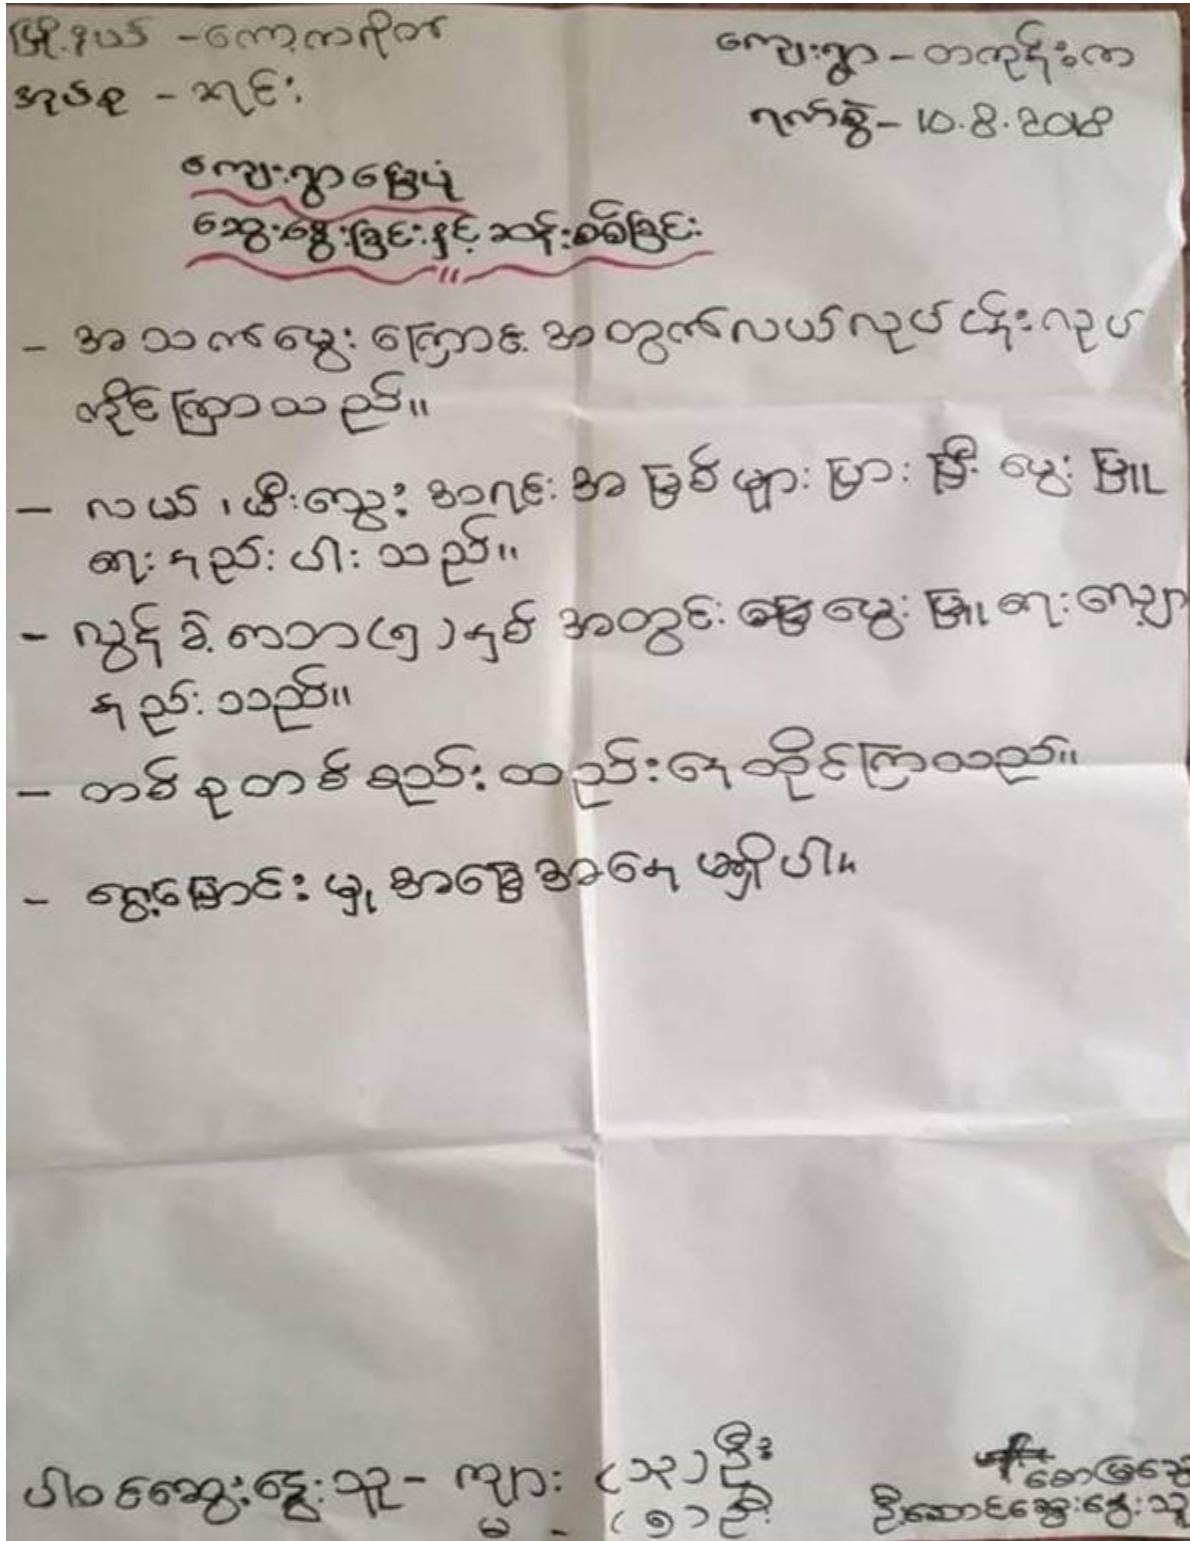 မြို့နယ် - ကော့ကရိတ်
ကျေးရွာ - တကုန်းက
အုပ်စု - ဆုင်း
ရက်စွဲ - ၁၀.၈.၂၀၁၈
ကျေးရွာမြေပုံ
ဆွေးနွေးခြင်းနှင့် ဆန်းစစ်ခြင်း
- အသက်မွေးကြောင်းအတွက်လယ်လုပ်ငန်းလုပ်
ကိုင်ကြာသည်။
- လယ်၊ အရင်းအမြစ်များ မွေးမြူ
ရေးနည်းပါးသည်။
- လွန်ခဲ့သော(၅)နှစ်အတွင်း မွေးမြူရေးလျော့
နည်းသည်။
- တစ်စုတစ်စည်းထည်းနေထိုင်ကြသည်။
- ရွှေ့ပြောင်းမှုအခြေအနေမရှိပါ။
ပါဝင်ဆွေးနွေးသူ - ကျား (၁၃)ဦး
မ - (၅)ဦး
ဦးဆောင်ဆွေးနွေးသူ